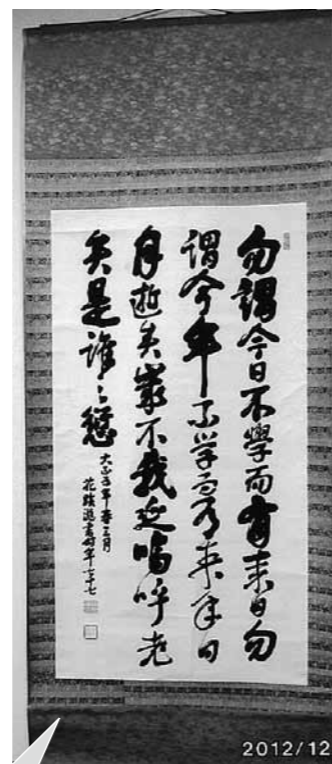 勿謂今日不學而有来日勿
謂今年不学而有来年日
月逝矣歳不我延嗚呼老
矣是誰之愆
大正五年春三月
花蹊書时年七十七
2012/12